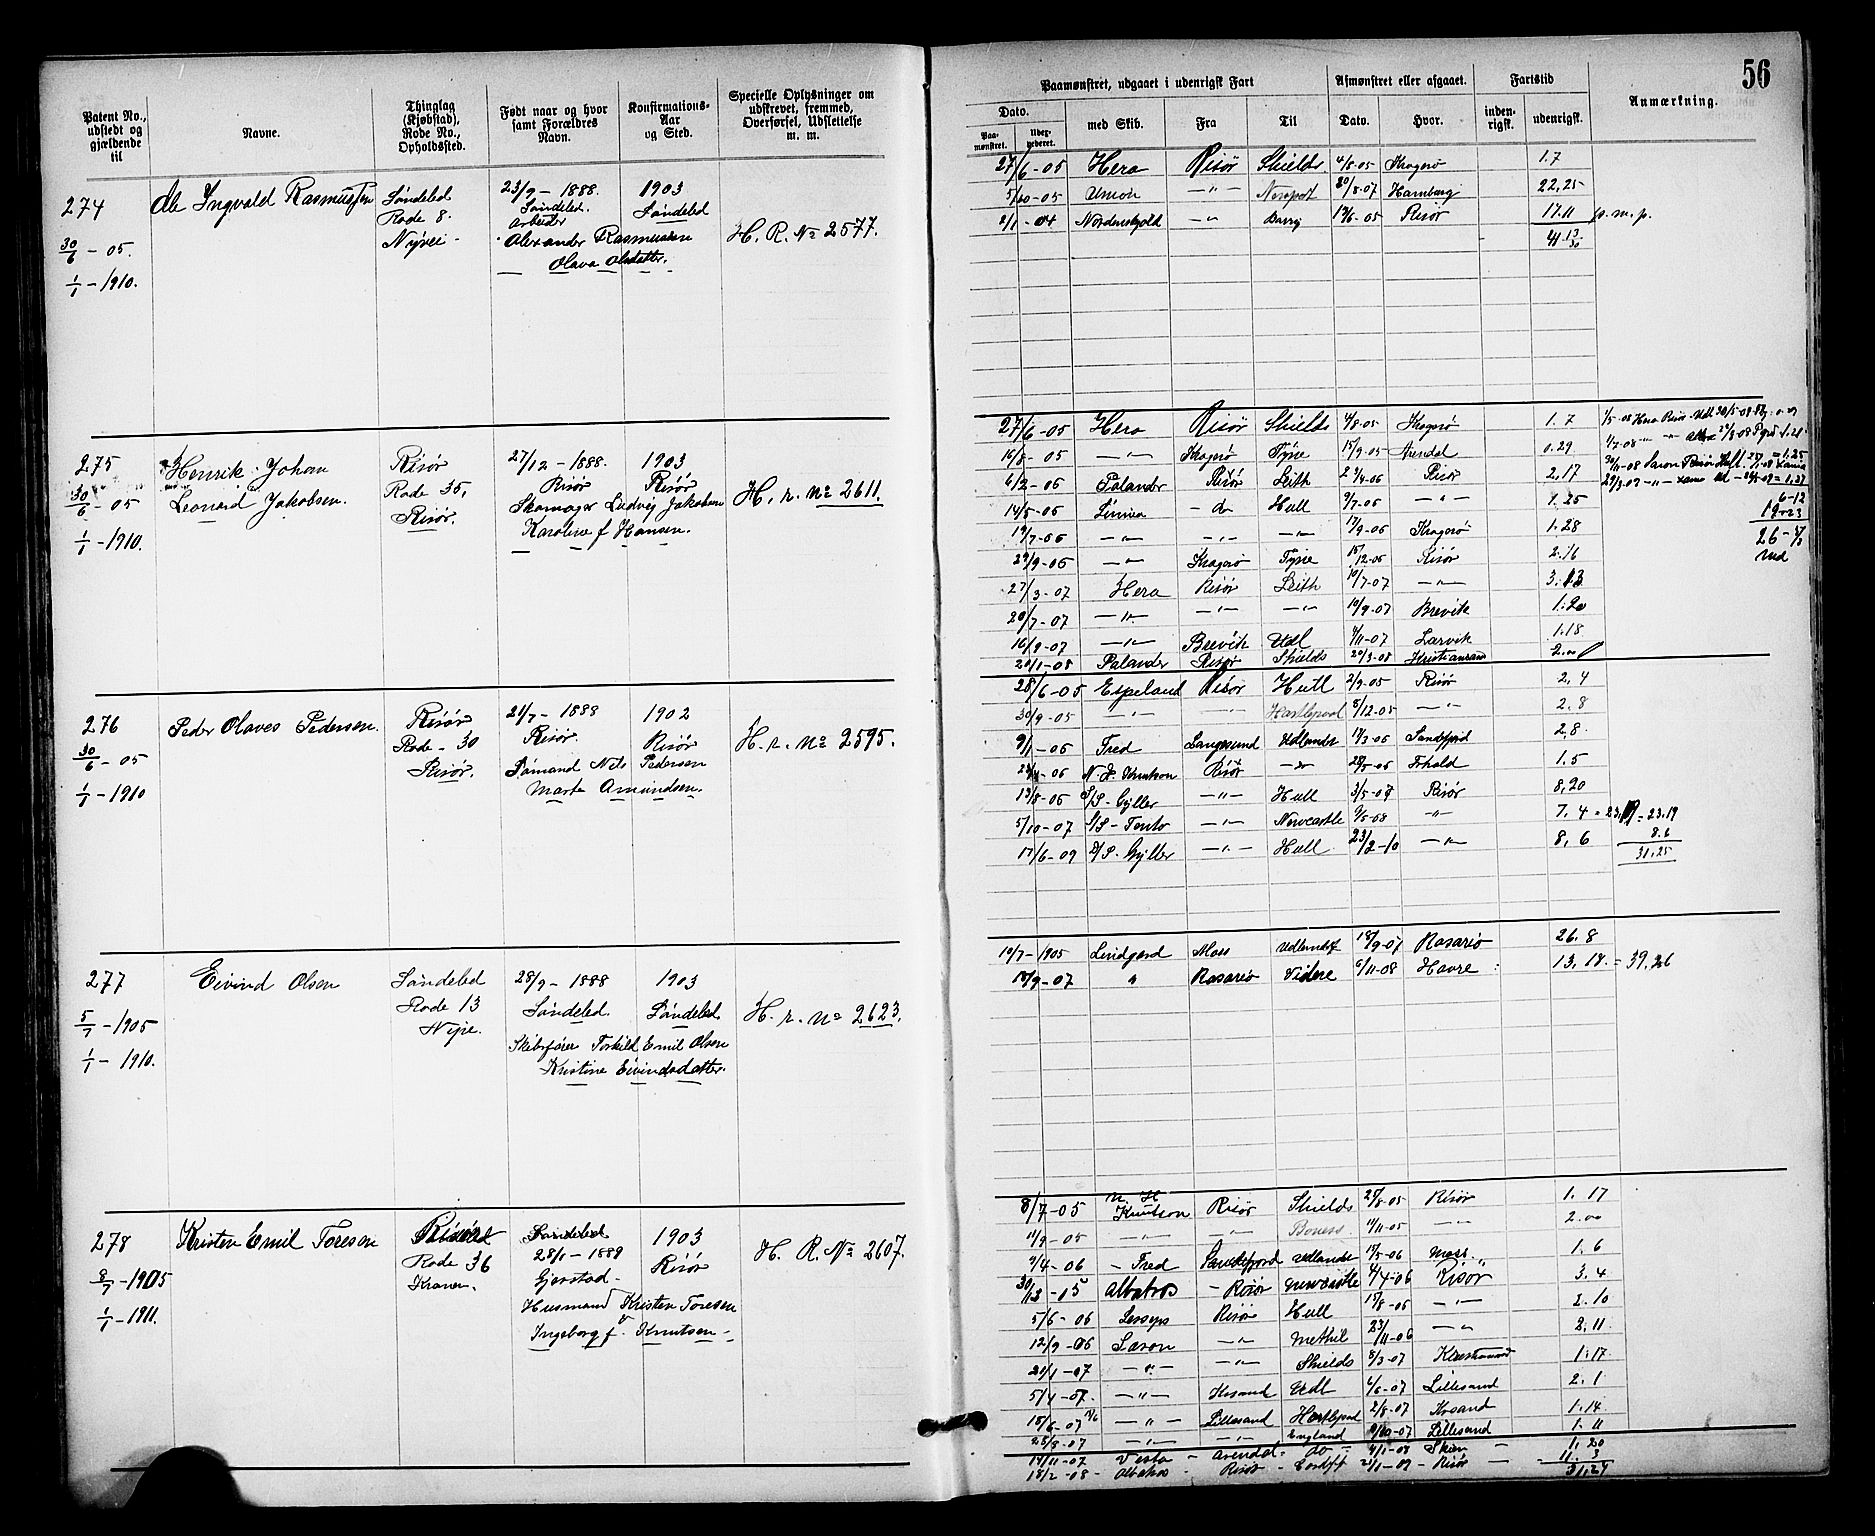 56
Patent No., udstedt og gjældende til
Navne.
Thinglag (Kjøbstad), Rode No., Opholdssted.
Født naar og hvor samt Forældres Navn.
Konfirmations-Aar og Sted.
Specielle Oplysninger om udskrevet, fremmed, Overførsel, Udslettelse m. m.
Paamønstret, udgaaet i udenrigsk Fart
Afmønstret eller afgaaet.
Fartstid
Anmærkning.
Dato.
Paa-mønstret.
med Skib.
Fra
Til
Dato.
Hvor.
inden-rigsk.
udenrigsk.
274
30/6 - 05.
1/1 - 1910.
Ole Ingvald Rasmussen
Søndeled
Rode 8.
23/9 - 1888.
Søndeled.
Arbeider
Alexander Rasmussen
Olava Olsdatter.
1903
Søndeled
H. R. No 2577.
27/6 - 05 Hera Risør Shields 4/8-05 Kragerø 1.7
5/10-05 Union -"- Hamburg 22.25
2/1 - 04 -"- Barry Risør 17.11 p. m. p.
275
30/6 - 05
1/1 - 1910.
Henrik Johan
Leonard Jakobsen.
Risør
Rode 35,
Risør.
27/12 - 1888.
Risør
Skomager Ludvig Jakobsen
Karoline f Hansen.
1903
Risør
H. r. No 2611.
27/6-05 Hera Risør Shields 4/8-05 Kragerø 1.7
16/8-05 -"- Kragerø Tyne 15/9-05 Arendal 0.29
6/2-06 Palander Risør Leith Risør 2.17
14/5-06 - do Hull 9/7-06 -"- 1.25
19/7-06 -"- -"- -"- 17/9-06 Kragerø 1.28
29/9-06 -"- Kragerø Tyne 15/12-06 Risør 2.16
27/3-07 Hera Risør Leith 10/7-07 -"-
20/7-07 -"- -"- -"- 10/9-07 Brevik 1.20
16/9-07 -"- Brevik Udl 4/11-07 Larvik 1.18
20/1-08 Palander Risør Shields 20/3-08 Kristiansand 2.00
6-12
26-
276
30/6 - 05
1/1 - 1910
Peder Olaves Pedersen.
Risør
Rode - 30
Risør.
21/7 - 1888
Risør.
Sømand Nils Pedersen
Marte Amundsen.
1902
Risør
H. r. No 2595.
28/6-05 Espeland Risør Hull 2/9-05 Risør 2.4
30/9-05 -"- -"- Hartlepool 8/12-05 -"- 2.8
9/1-06 Fred Langesund Udlandet 2.8.
Risør 1.5
13/8-06 S/S - Gyller -"- Hull Risør 8,20
5/10-07 S/S - Tento -"- Newcastle 9/5-08 " 7.4
17/6-09 D/S - Gyller -"- Hull 23/2-10 -"- 8,6
23.19
8.6
31.25
277
5/7 - 1905
1/1 - 1910.
Eivind Olsen
Søndeled
Rode 13
28/9 - 1888
Søndeled.
Skibsfører Torkild Emil Olsen
Kristine Eivindsdatter.
1903
Søndeled.
H. r. No 2623.
19/7-1905 Lindgard Moss 18/9-07 Rosario 26.8
18/9-07 " Rosario 6/11-08 Havre 13,18. = 39,26
278
8/7 - 1905
1/1 - 1911.
Kristen Emil Toresen
Rode 36
Søndeled
28/1 - 1889
Gjerstad -
Husmand Kristen Toresen
Ingeborg f. Knutsen -
1903
Risør
H. R. No 2607.
8/7-05 N. H Knutson Risør Shields 25/8-05 Risør 1. 17
11/9-05 -"- -"- Boness 11/11-05 -"- 2.00
9/4-06 - Fred Sandefjord Udlandet 15/5-06 Moss. 1.6
Albatros - Risør Newcastle Risør 3.4
5/6-06 Lesseps Risør Hull 15/8-06 -"- 2.10
12/9-06 Saron -"- Methil 23/11-06 -"- 2.11
21/1-07 -"- -"- Shields 8/3-07 1.17
5/4-07. -"- Krsand Udl 6/6-07 Lillesand 2.1
15/6-07 -"- Lillesand Hartlepool 2/8-07 Krsand 1.14
25/8-07 -"- -"- England Lillesand 1.11
14/11-07 Vesta - Arendal - do - Skien - 1,20
18/2-08 - Albatros - Risør - - Risør - 11.3
31,24